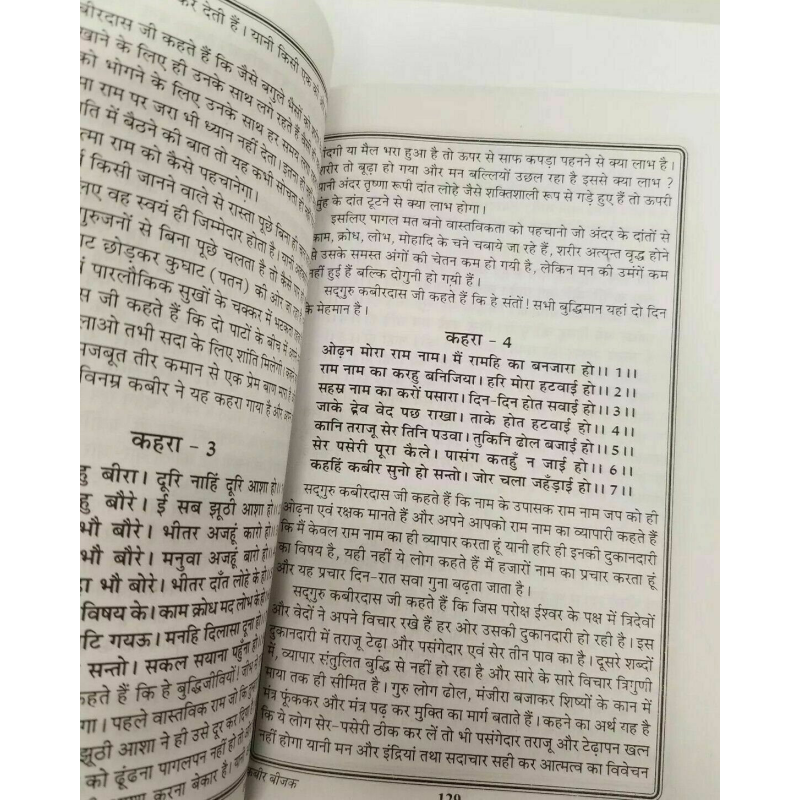 कर देती हैं। यानी किसी एक की
कबीरदास जी कहते हैं कि जैसे बगुले भैंसों की
खाने के लिए ही उनके साथ लगे रहते हैं
को भोगने के लिए उनके साथ हर समय लगा
राम पर जरा भी ध्यान नहीं देता। इतना ही
में बैठने की बात तो यह कभी सोचता ही
राम को कैसे पहचानेगा।
किसी जानने वाले से रास्ता पूछे बिना ही
वह स्वयं ही जिम्मेदार होता है। यानी
गुरुजनों से बिना पूछे चलता है तो कैसे पार
छोड़कर कुघाट (पतन) की ओर जा रहा
पारलौकिक सुखों के चक्कर में भटकता
जी कहते हैं कि दो पाटों के बीच में आने
तभी सदा के लिए शांति मिलेगी।
मजबूत तीर कमान से एक प्रेम बाण मारा है
विनम्र कबीर ने यह कहरा गाया है और अपने
कहरा - 3
बीरा। दूरि नाहिं दूरि आशा हो
बौरे। ई सब झूठी आशा हो
भौ बौरे। भीतर अजहूं कारो हो
भौ बौरे। मनुवा अजहूं बारो हो
भौ बोरे। भीतर दाँत लोहे के हो
विषय के। काम क्रोध मद लोभ के हो
गयऊ। मनहि दिलासा दूना हो
सन्तो। सकल सयाना पहुँना हो
कहते हैं कि हे बुद्धिजीवियों! जीभ
पहले वास्तविक राम जो कि तुम
झूठी आशा ने ही उसे दूर कर दिया है
को ढूंढना पागलपन नहीं हो तो और
करना बेकार है।
गंदगी या मैल भरा हुआ है तो ऊपर से साफ कपड़ा पहनने से क्या लाभ है।
शरीर तो बूढ़ा हो गया और मन बल्लियों उछल रहा है इससे क्या लाभ ?
यानी अंदर तृष्णा रूपी दांत लोहे जैसे शक्तिशाली रूप से गड़े हुए हैं तो ऊपरी
मुंह के दांत टूटने से क्या लाभ होगा।
इसलिए पागल मत बनो वास्तविकता को पहचानो जो अंदर के दांतों से
काम, क्रोध, लोभ, मोहादि के चने चबाये जा रहे हैं, शरीर अत्यन्त वृद्ध होने
से उसके समस्त अंगों की चेतन कम हो गयी है, लेकिन मन की उमंगें कम
नहीं हुई हैं बल्कि दोगुनी हो गयी हैं।
सद्गुरु कबीरदास जी कहते हैं कि हे संतों! सभी बुद्धिमान यहां दो दिन
के मेहमान है।
कहरा - 4
ओढ़न मोरा राम नाम। मैं रामहि का बनजारा हो।। 1।।
राम नाम का करहु बनिजिया। हरि मोरा हटवाई हो।। 2।।
सहस्र नाम का करों पसारा। दिन-दिन होत सवाई हो।। 3।।
जाके द्रेव वेद पछ राखा। ताके होत हटवाई हो।। 4।।
कानि तराजू सेर तिनि पउवा। तुकिनि ढोल बजाई हो।। 5।।
सेर पसेरी पूरा कैले। पासंग कतहुँ न जाई हो।। 6।।
कहहिं कबीर सुनो हो सन्तो। जोर चला जहँड़ाई हो।। 7।।
सद्गुरु कबीरदास जी कहते हैं कि नाम के उपासक राम नाम जप को ही
ओढ़ना एवं रक्षक मानते हैं और अपने आपको राम नाम का व्यापारी कहते हैं
कि मैं केवल राम नाम का ही व्यापार करता हूं यानी हरि ही इनकी दुकानदारी
का विषय है, यही नहीं ये लोग कहते हैं मैं हजारों नाम का प्रचार करता हूं
और यह प्रचार दिन-रात सवा गुना बढ़ता जाता है।
सद्गुरु कबीरदास जी कहते हैं कि जिस परोक्ष ईश्वर के पक्ष में त्रिदेवों
और वेदों ने अपने विचार रखे हैं हर ओर उसकी दुकानदारी हो रही है। इस
दुकानदारी में तराजू टेढ़ा और पसंगेदार एवं सेर तीन पाव का है। दूसरे शब्दों
में, व्यापार संतुलित बुद्धि से नहीं हो रहा है और सारे के सारे विचार त्रिगुणी
माया तक ही सीमित है। गुरु लोग ढोल, मंजीरा बजाकर शिष्यों के कान में
मंत्र फूंककर और मंत्र पढ़ कर मुक्ति का मार्ग बताते हैं। कहने का अर्थ यह है
कि ये लोग सेर-पसेरी ठीक कर लें तो भी पसंगेदार तराजू और टेढ़ापन खत्म
नहीं होगा यानी मन और इंद्रियां तथा सदाचार सही कर आत्मत्व का विवेचन
कबीर बीजक
129